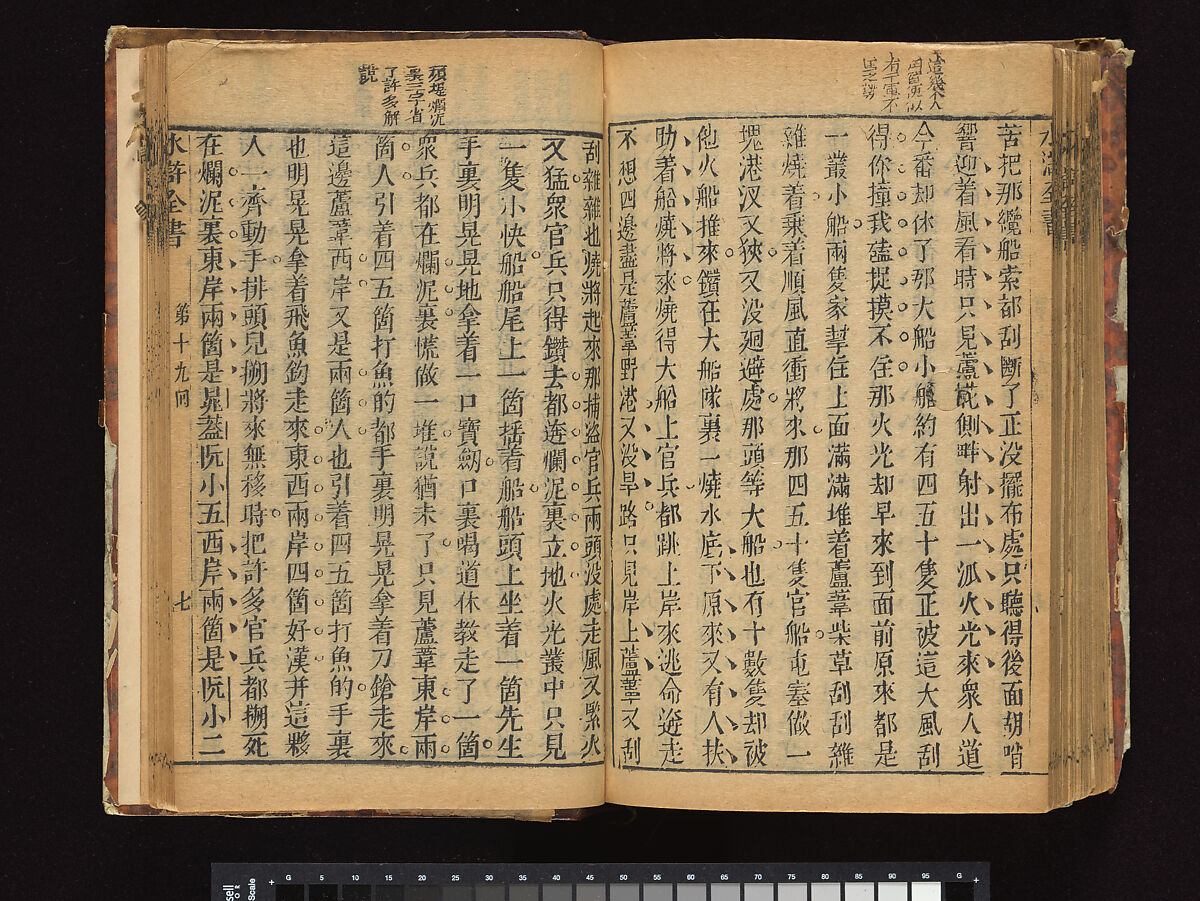 這幾个人
苦把那纜船索都刮斷了正没擺布處只聽得後面胡哨
響迎着風看時只見蘆花側畔射出一派火光來衆人道
今番却休了那大船小船約有四五十隻正被這大風刮
得你撞我磕捉摸不住那火光却早來到面前原來都是
一叢小船兩隻家幫住上面滿滿堆着蘆葦柴草刮刮雜
雜燒着乗着順風直衝將來那四五十隻官船屯塞做一
塊港汊又狹又没廻避處那頭等大船也有十數隻却被
他火船推來鑽在大船隊裏一燒水底下原來又有人扶
助着船燒將來燒得大船上官兵都跳上岸來逃命奔走
不想四邊盡是蘆葦野港又没旱路只見岸上蘆葦又刮
蘋堤爛泥
裏三字省
了許多解
說
刮雜雜也燒將起來那捕盗官兵兩頭没處走風又緊火
又猛衆官兵只得鑽去都奔爛泥裏立地火光叢中只見
一隻小快船船尾上一箇揺着船船頭上坐着一箇先生
手裏明晃晃地拿着一口寶劔口裏喝道休教走了一箇
衆兵都在爛泥裏慌做一堆說猶未了只見蘆葦東岸兩
箇人引着四五箇打魚的都手裏明晃晃拿着刀鎗走來
這邊蘆葦西岸又是兩箇人也引着四五箇打魚的手裏
也明晃晃拿着飛魚鈎走來東西兩岸四箇好漢并這夥
人一齊動手排頭兒搠將來無移時把許多官兵都搠死
在爛泥裏東岸兩箇是晁蓋阮小五西岸兩箇是阮小二
水滸全書
第十九回
七